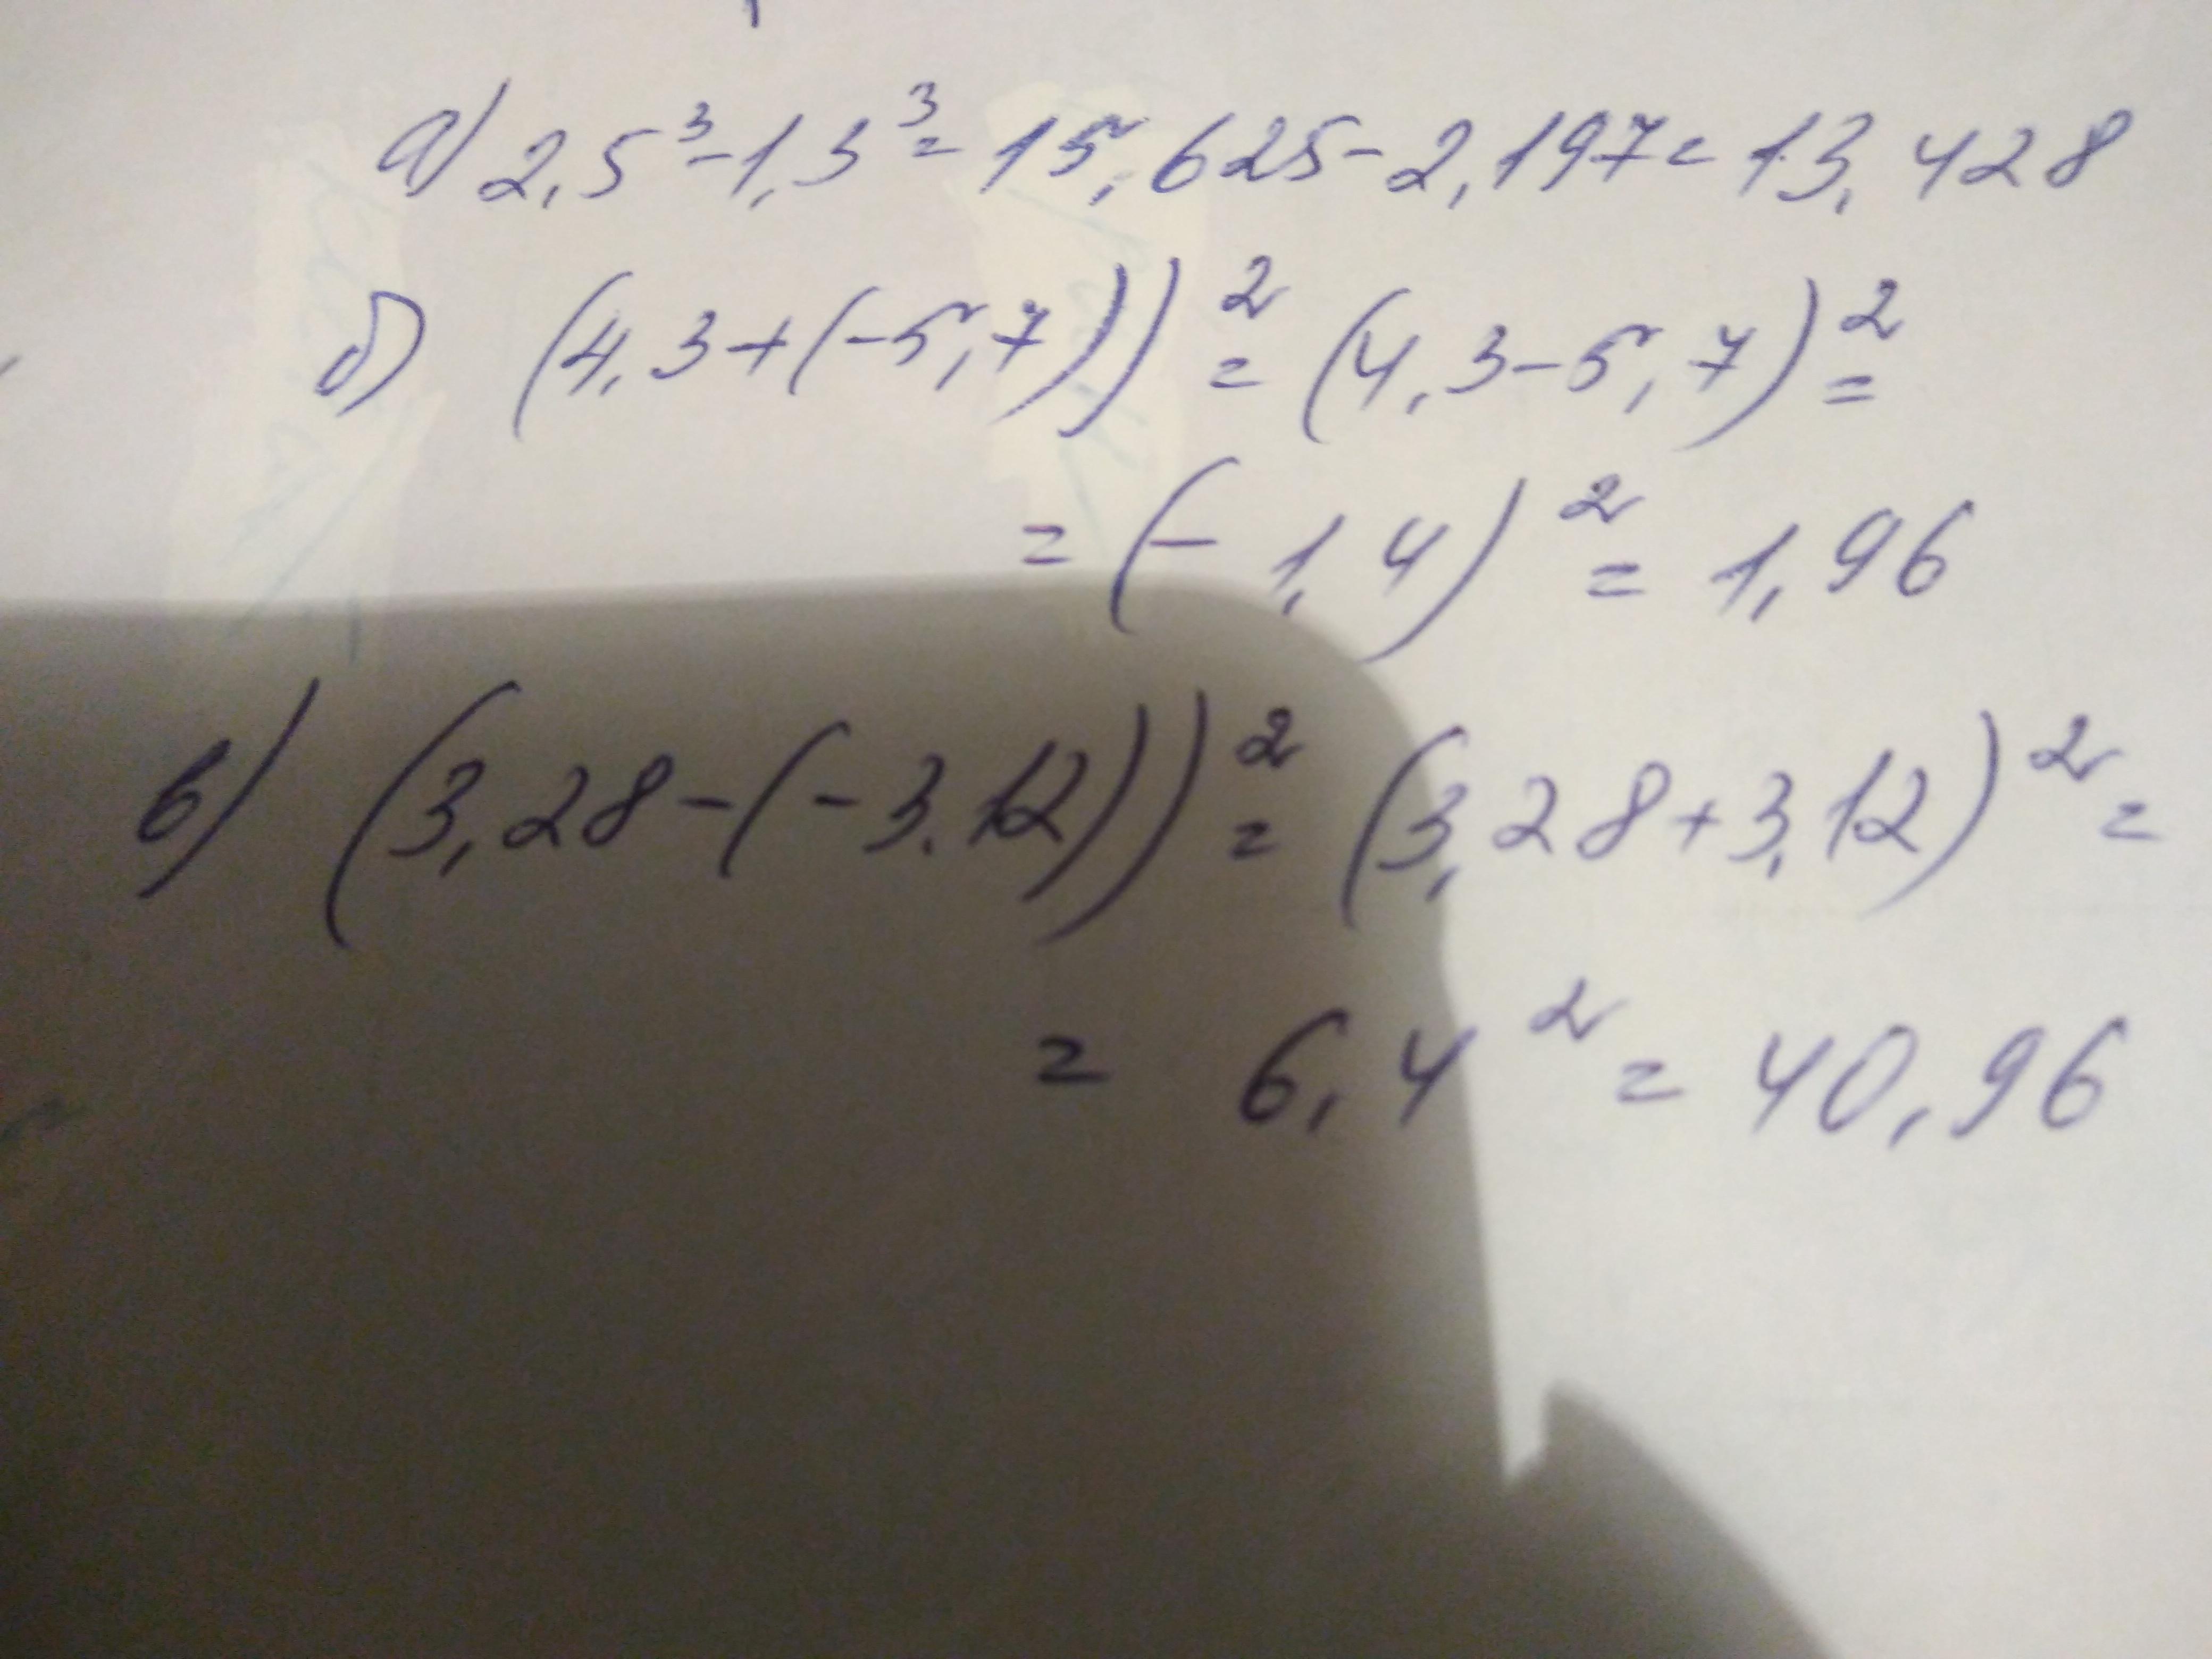 а) 2,5³-1,3³=15,625-2,197=13,428
б) (4,3+(-5,7))²=(4,3-5,7)²=
=(-1,4)²=1,96
в) (3,28-(-3.12))²=(3,28+3,12)²=
= 6,4²=40,96